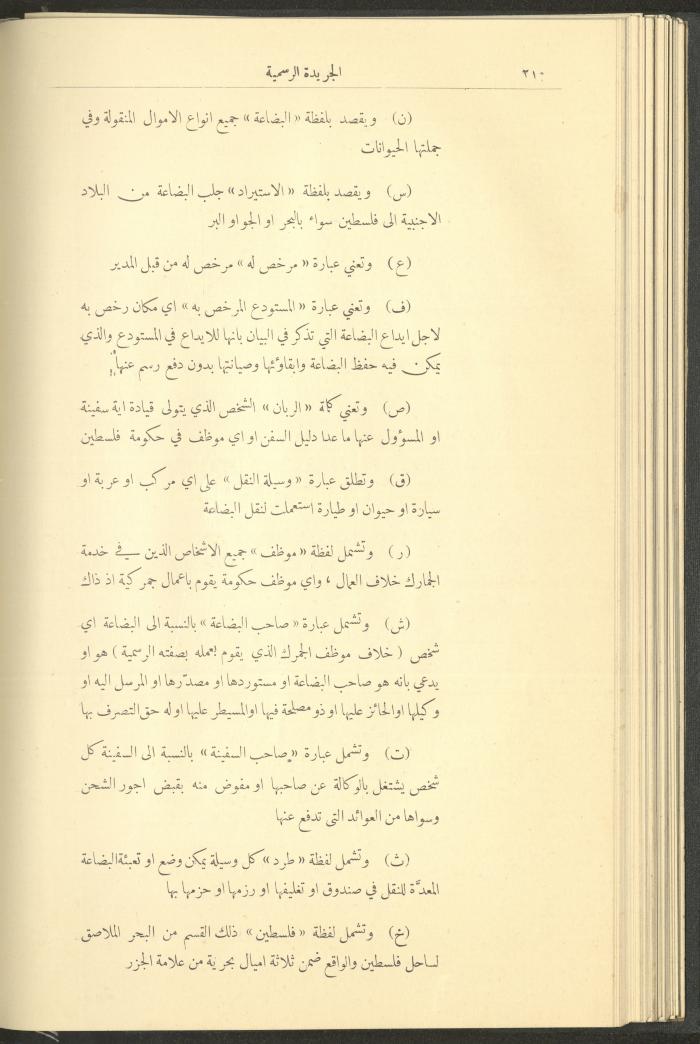 ٢١٠ الجريدة الرسمية
(ن) ويقصد بلفظة « البضاعة » جميع انواع الاموال المنقولة وفي
جملتها الحيوانات
(س) ويقصد بلفظة « الاستيراد » جلب البضاعة من البلاد
الاجنبية الى فلسطين سواء بالبحر او الجو او البر
(ع) وتعني عبارة « مرخص له » مرخص له من قبل المدير
(ف) وتعني عبارة « المستودع المرخص به » اي مكان رخص به
لاجل ايداع البضاعة التي تذكر في البيان بانها للايداع في المستودع والذي
يمكن فيه حفظ البضاعة وابقاؤئها وصيانتها بدون دفع رسم عنها
(ص) وتعني كلمة « الربان » الشخص الذي يتولى قيادة اية سفينة
او المسؤول عنها ما عدا دليل السفن او اي موظف في حكومة فلسطين
(ق) وتطلق عبارة « وسيلة النقل » على اي مركب او عربة او
سيارة او حيوان او طيارة استعملت لنقل البضاعة
(ر) وتشمل لفظة « موظف » جميع الاشخاص الذين في خدمة
الجمارك خلاف العمال ، واي موظف حكومة يقوم باعمال جمركية اذ ذاك
(ش) وتشمل عبارة « صاحب البضاعة » بالنسبة الى البضاعة اي
شخص ( خلاف موظف الجمرك الذي يقوم بعمله بصفته الرسمية ) هو او
يدعي بانه هو صاحب البضاعة او مستوردها او مصدّرها او المرسل اليه او
وكيلها او الحائز عليها او ذو مصلحة فيها او المسيطر عليها او له حق التصرف بها
(ت) وتشمل عبارة « صاحب السفينة » بالنسبة الى السفينة كل
شخص يشتغل بالوكالة عن صاحبها او مفوض منه بقبض اجور الشحن
وسواها من العوائد التي تدفع عنها
(ث) وتشمل لفظة « طرد » كل وسيلة يمكن وضع او تعبئة البضاعة
المعدَّة للنقل في صندوق او تغليفها او رزمها او حزمها بها
(خ) وتشمل لفظة « فلسطين » ذلك القسم من البحر الملاصق
لساحل فلسطين والواقع ضمن ثلاثة اميال بحرية من علامة الجزر